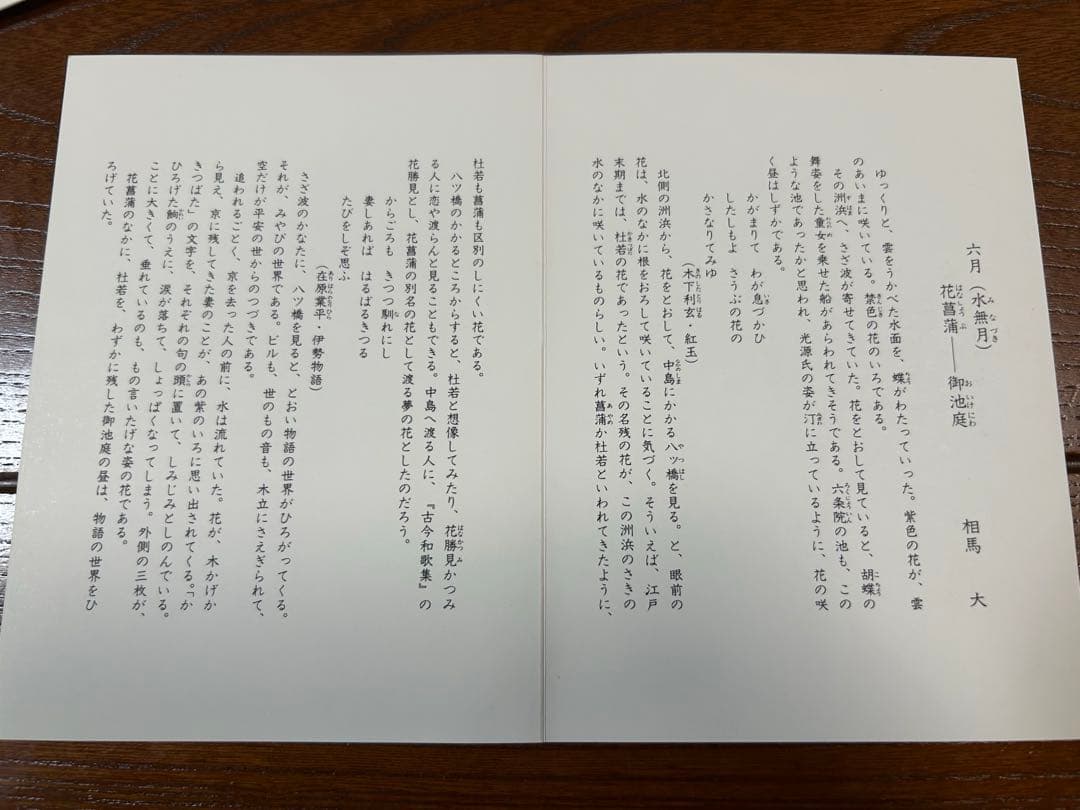 六月（水無月）
花菖蒲――御池庭
相馬 大
ゆっくりと、雲をうかべた水面を、蝶がわたっていった。紫色の花が、雲
のあいまに咲いている。禁色の花のいろである。
その洲浜へ、さざ波が寄せてきていた。花をとおして見ていると、胡蝶の
舞姿をした童女を乗せた船があらわれてきそうである。六条院の池も、この
ような池であったかと思われ、光源氏の姿が汀に立っているように、花の咲
く昼はしずかである。
かがまりて わが息づかひ
したしもよ さうぶの花の
かさなりてみゆ
（木下利玄・紅玉）
北側の洲浜から、花をとおして、中島にかかる八ッ橋を見る。と、眼前の
花は、水のなかに根をおろして咲いていることに気づく。そういえば、江戸
末期までは、杜若の花であったという。その名残の花が、この洲浜のさきの
水のなかに咲いているものらしい。いずれ菖蒲か杜若といわれてきたように、
杜若も菖蒲も区別のしにくい花である。
八ツ橋のかかるところからすると、杜若と想像してみたり、花勝見かつみ
る人に恋や渡らんと見ることもできる。中島へ渡る人に、『古今和歌集』の
花勝見とし、花菖蒲の別名の花として渡る夢の花としたのだろう。
からごろも きつつ馴れにし
妻しあれば はるばるきつる
たびをしそ思ふ
（在原業平・伊勢物語）
さざ波のかなたに、八ツ橋を見ると、とおい物語の世界がひろがってくる。
それが、みやびの世界である。ビルも、世のもの音も、木立にさえぎられて、
空だけが平安の世からのつづきである。
追われるごとく、京を去った人の前に、水は流れていた。花が、木かげか
ら見え、京に残してきた妻のことが、あの紫のいろに思い出されてくる。「か
きつばた」の文字を、それぞれの句の頭に置いて、しみじみとしのんでいる。
ひろげた餉のうえに、涙が落ちて、しょっぱくなってしまう。外側の三枚が、
ことに大きくて、垂れているのも、もの言いたげな姿の花である。
花菖蒲のなかに、杜若を、わずかに残した御池庭の昼は、物語の世界をひ
ろげていた。